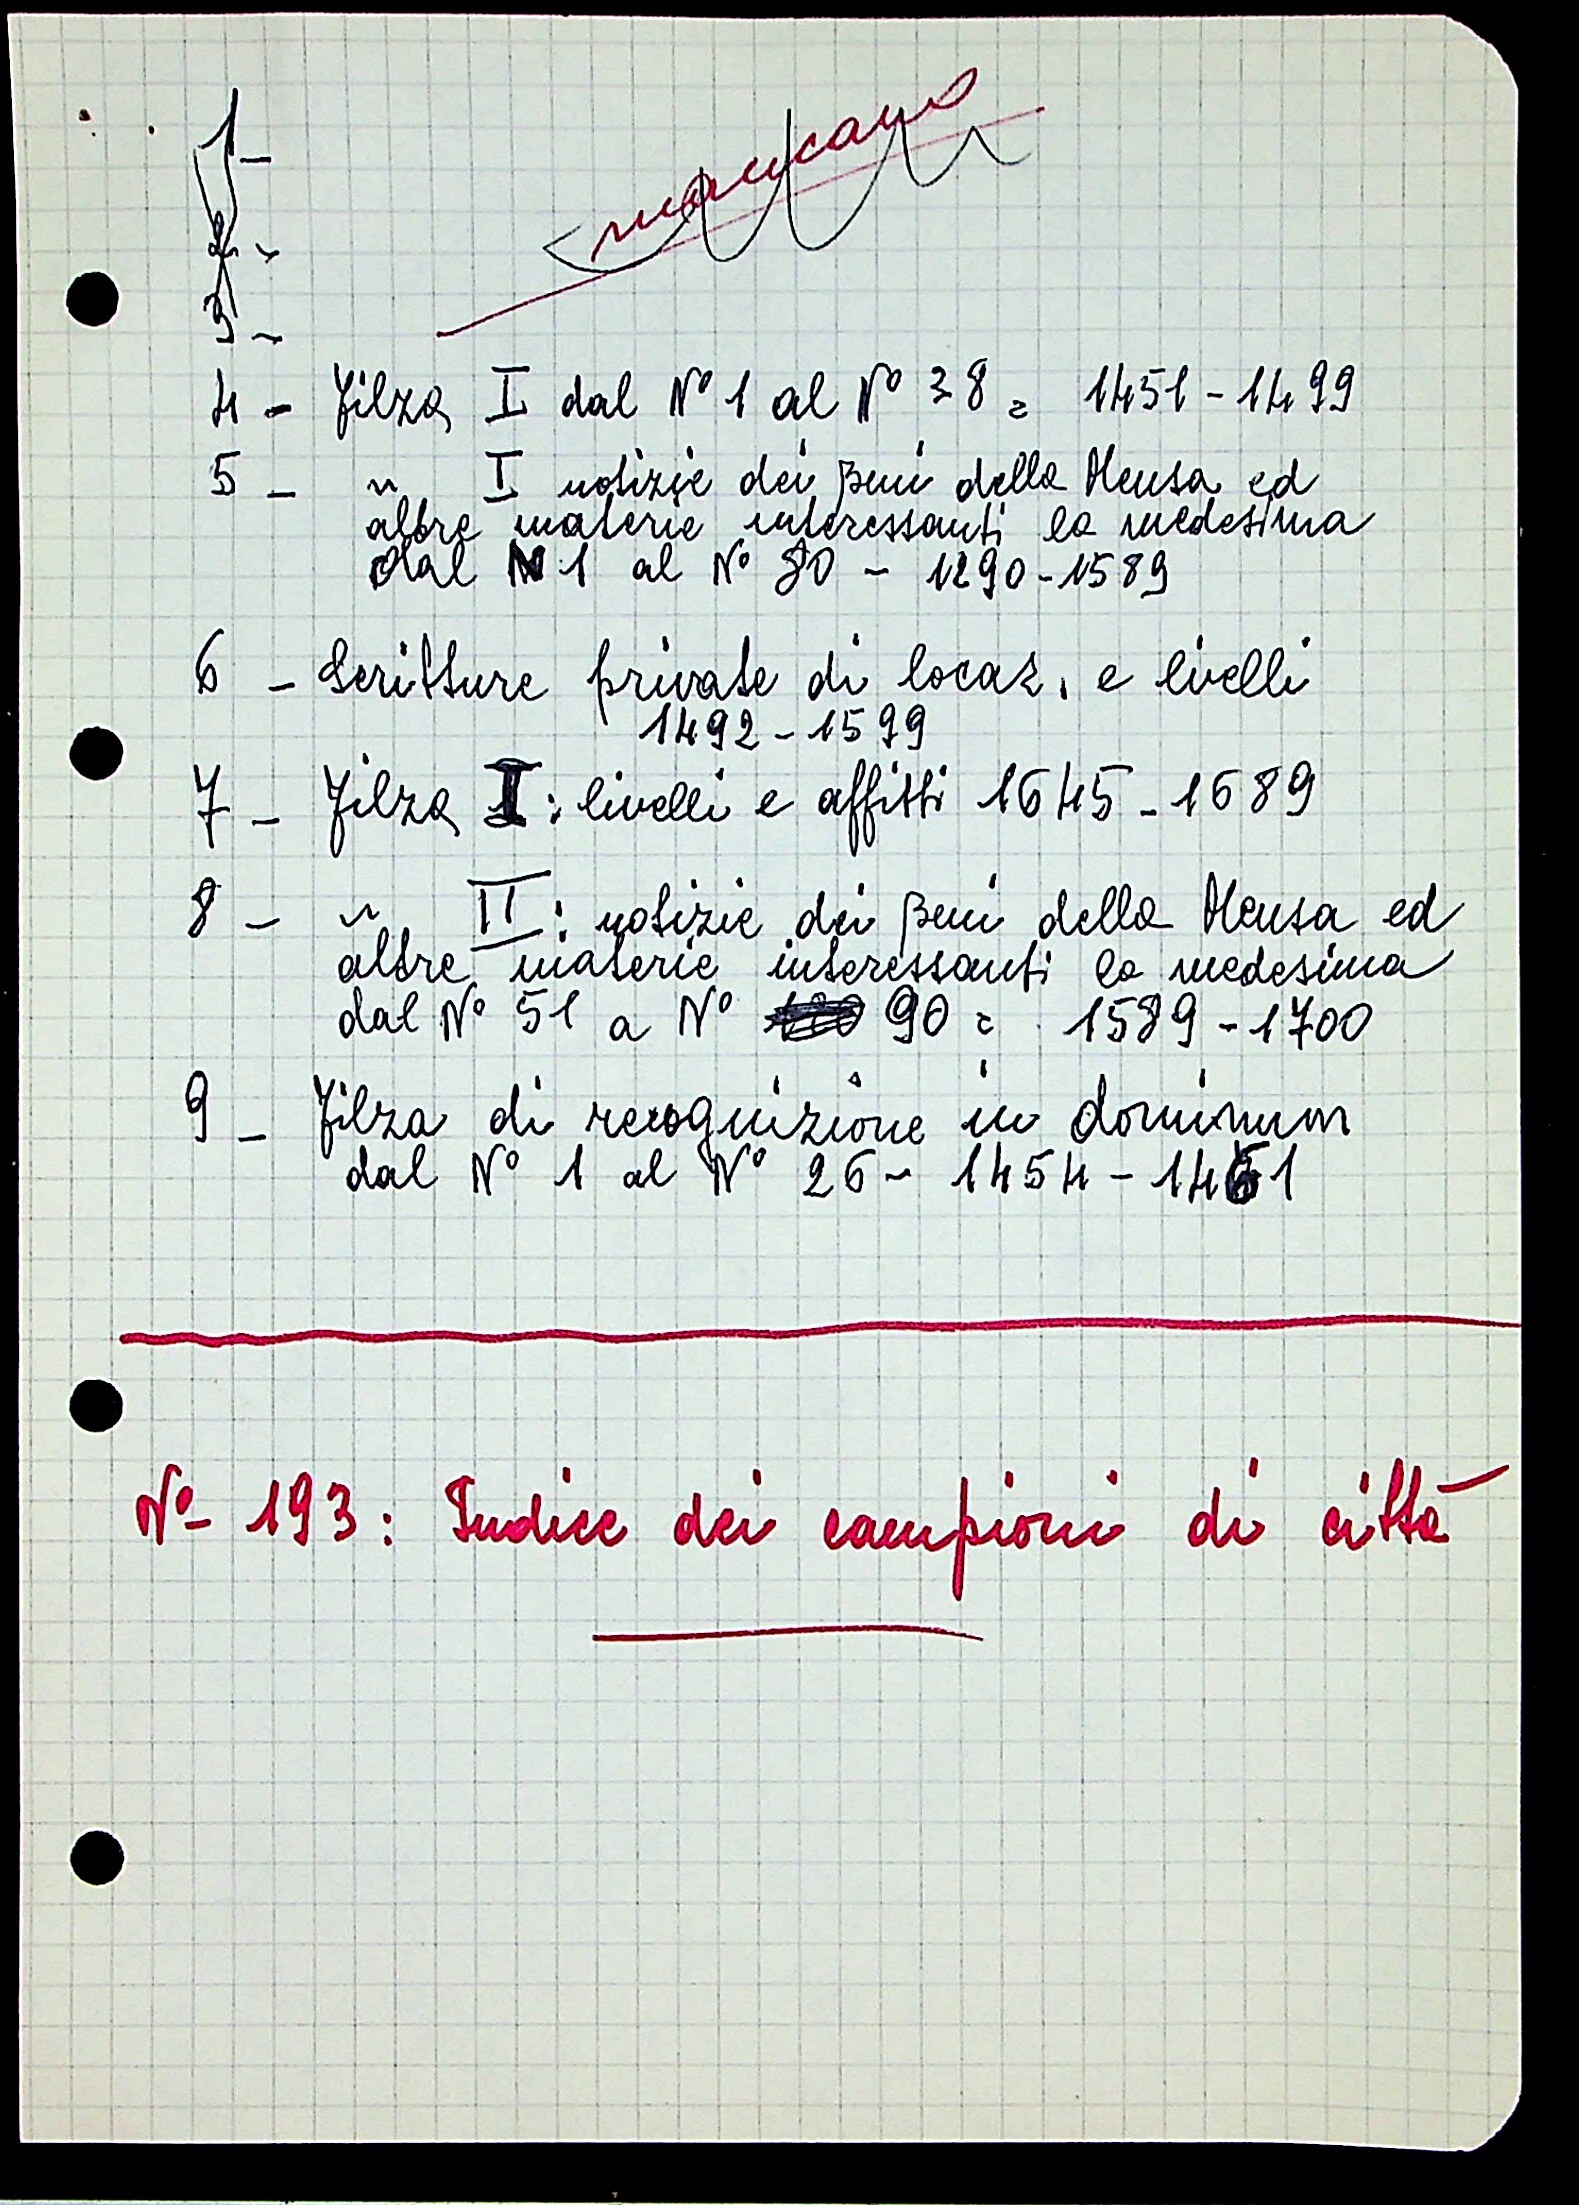 mancano
1 -
2 -
3 -
4 - Filza I dal N° 1 al N° 38 = 1451 - 1499
5 - " I notizie dei beni della Mensa ed
altre materie interessanti la medesima
dal N 1 al N° 80 - 1290 - 1589
6 - Scritture private di locaz. e livelli
1492 - 1599
7 - Filza I : livelli e affitti 1645 - 1689
8 - " II : notizie dei beni della Mensa ed
altre materie interessanti la medesima
dal N° 51 a N° 90 = 1589 - 1700
9 - Filza di recognizione in dominum
dal N° 1 al N° 26 - 1454 - 1461
N° 193 : Indice dei campioni di città